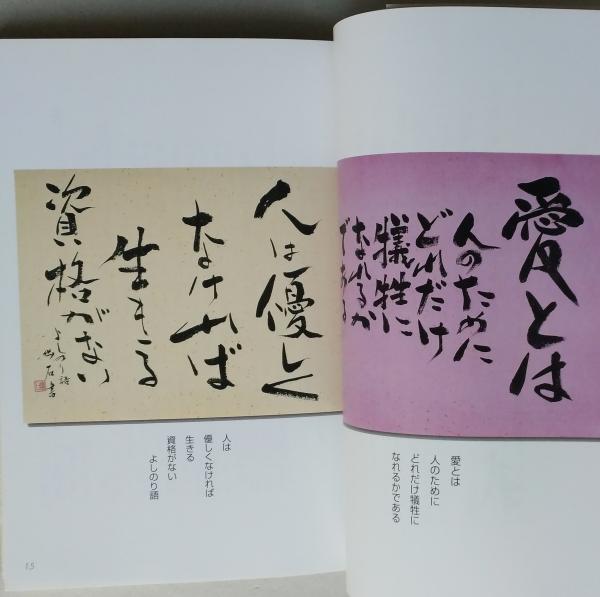 愛とは
人のために
どれだけ
犠牲に
なれるか
である
愛とは
人のために
どれだけ犠牲に
なれるかである
人は優しく
なければ
生きる
資格がない
よしのり語
人は
優しくなければ
生きる
資格がない
よしのり語
15